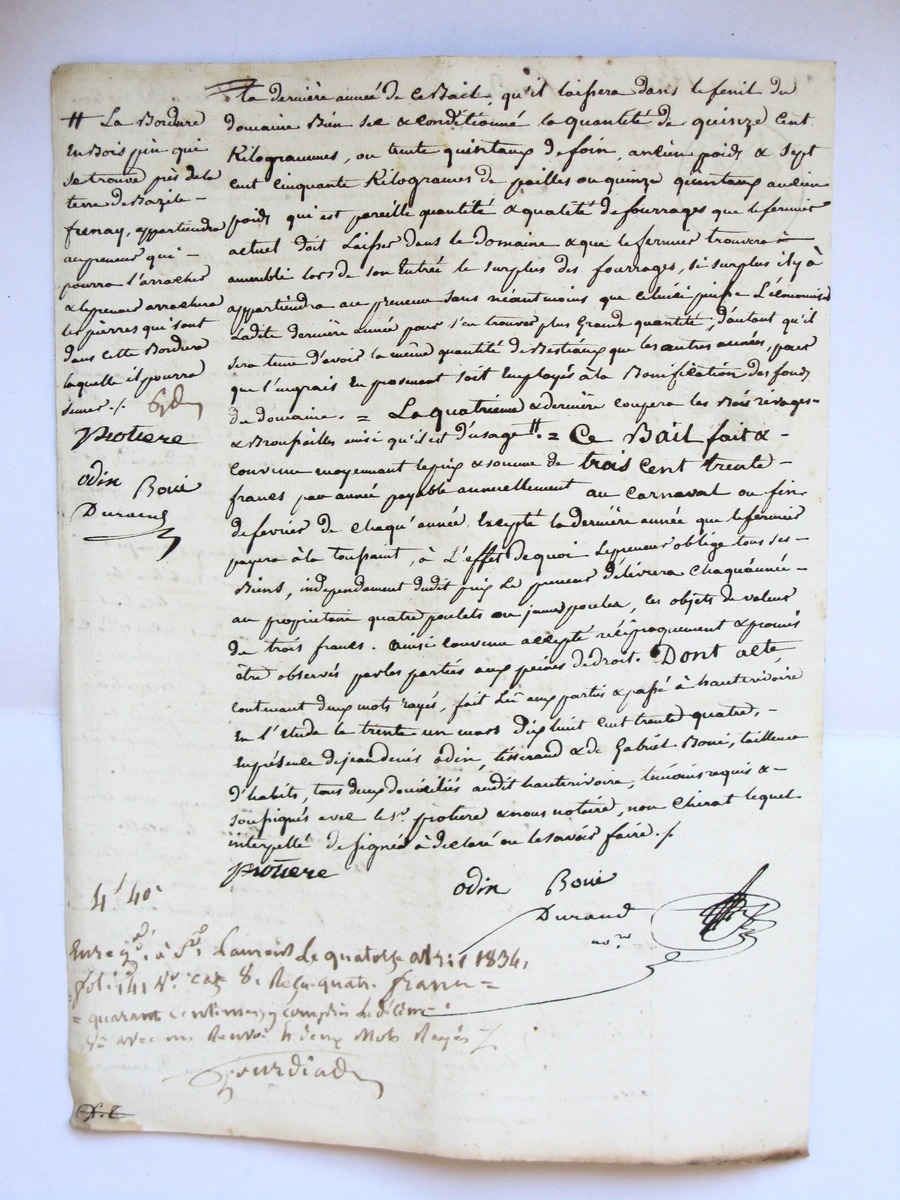 la derniere année de ce Bail, qu'il laissera dans le fenil du
domaine Bien sec & conditionné la quantité de quinze cent
Kilogrammes, ou trente quintaux de foin, ancien poids & sept
cent cinquante Kilogrames de pailles ou quinze quintaux ancien
poids qui est pareille quantité & qualité de fourrages que le fermier
actuel doit laisser dans le domaine & que le fermier trouvera
amenblé lors de son Entrée le surplus des fourrages, si surplus il y à
appartiendra au preneur sans néantmoins que celui ci puisse L'économiser
Ladite derniere année pour s'en trouver plus Grande quantité, d'autant qu'il
sera tenu d'avoir la même quantité de Bestiaux que les autres années, pour
que l'engrais En provenant soit Employés à la Bonification des fonds
du domaine. = La quatrieme & derniere coupera les Bois rivages
& Broussailles ainsi qu'il est d'usage #. = Ce Bail fait &
convenu moyennant le prix & somme de trois cent trente
francs par année payable annuellement au carnaval ou fin
de fevrier de chaqu'année Excepté la derniere année que le fermier
payera à la toussaint, à L'effet de quoi Le preneur oblige tous ses
Biens, independament dudit prix Le preneur délivrera chaqu'année
au propriétaire quatre poulets ou jeunes poules, les objets de valeur
de trois francs. ainsi convenu accepté réciproquement & promis
être observés par les parties aux peines de droit. Dont acte
contenant deux mots rayés, fait Lu aux parties & passé à hauterivoire
En l'étude le trente un mars dix huit cent trente quatre,
En présence de jean denis odin, tisserand & de Gabriel Boui, tailleur
d'habits, tous deux domiciliés audit hauterivoire, témoins requis &
soussignés avec le sr. protiere & nous notaire, non Chirat lequel
interpellé de signer à déclaré ne le savoir faire ./.
protiere
odin Boui
Durand
nore
# La Bordure
En Bois pin qui
se trouve près de la
terre de Bazile
frenay, appartiendra
au preneur qui
pourra l'arracher
& le preneur arrachera
les pierres qui sont
dans cette Bordure
laquelle il pourra
semer ./.
protiere
odin Boui
Durand
4f 40c
Enregé. à St Laurent Le quatorze avril 1834,
fol. 141 Vo. case 8. Reçu quatre francs
quarante centimes, y compris le décime
avec un Renvoi & deux Mots Rayés